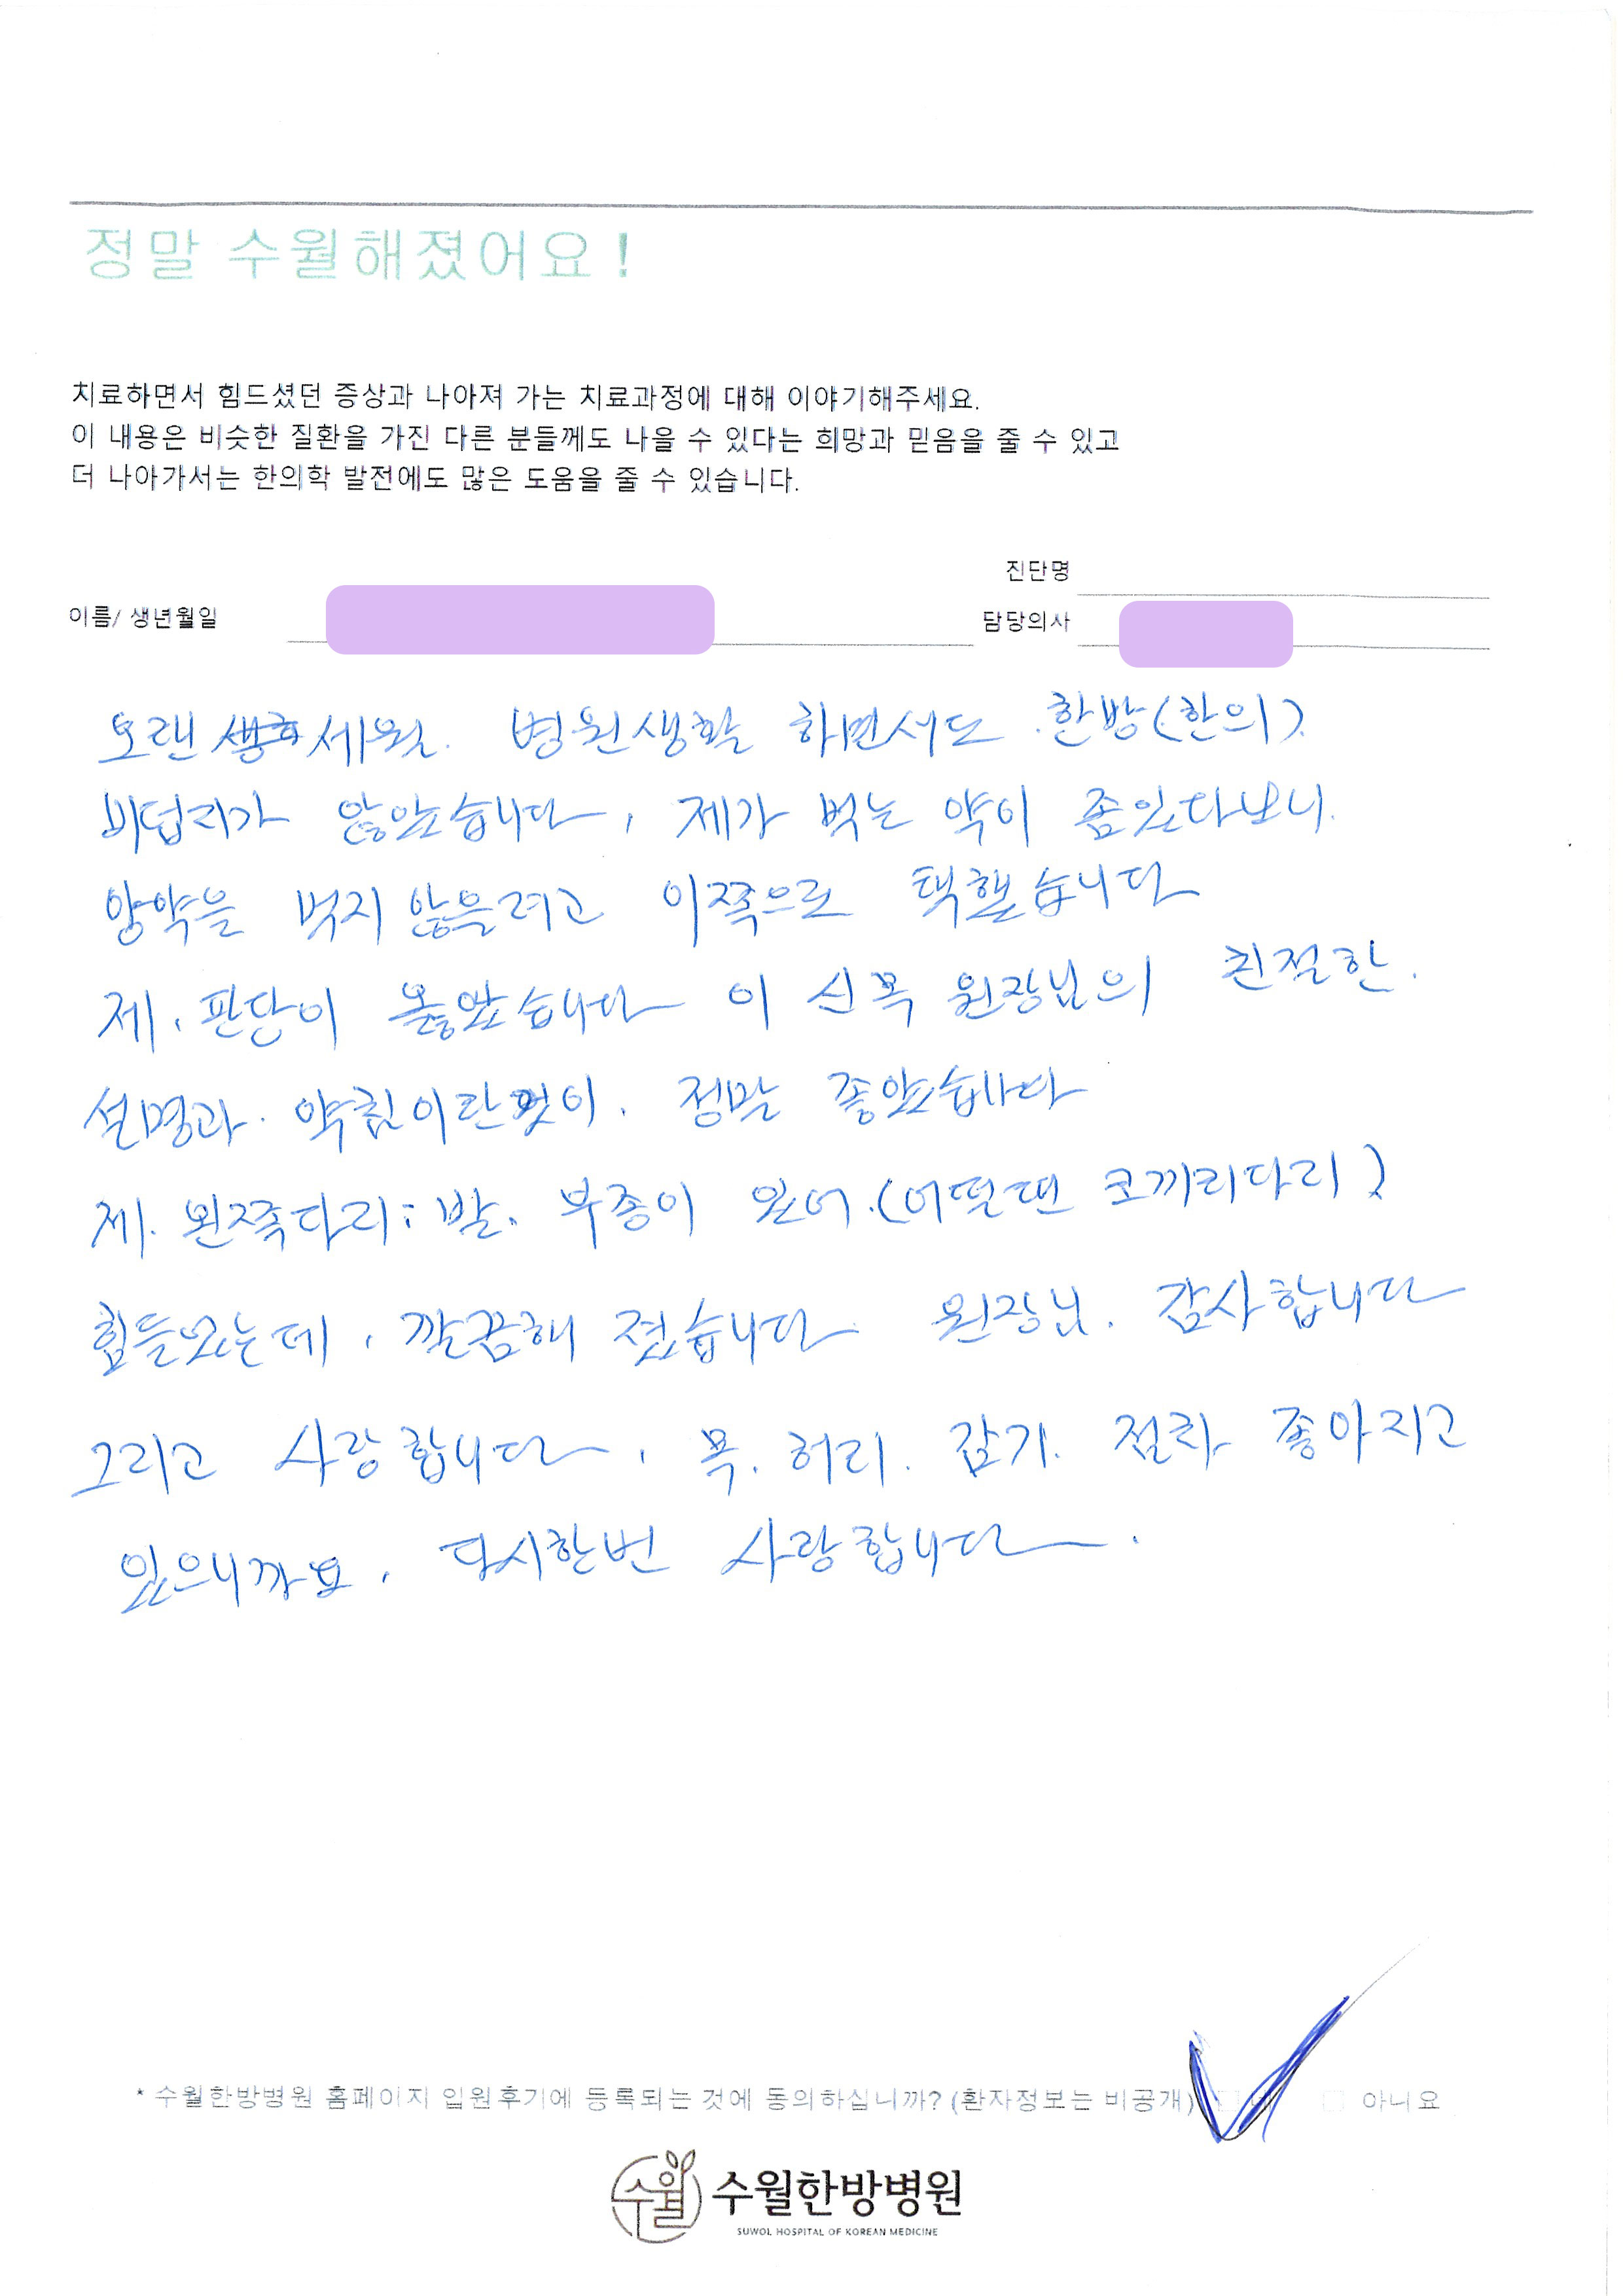 정말 수월해졌어요!
치료하면서 힘드셨던 증상과 나아져 가는 치료과정에 대해 이야기해주세요.
이 내용은 비슷한 질환을 가진 다른 분들께도 나을 수 있다는 희망과 믿음을 줄 수 있고
더 나아가서는 한의학 발전에도 많은 도움을 줄 수 있습니다.
진단명
이름/ 생년월일
담당의사
오랜 세월. 병원생활 하면서도 한방(한의)
미덥지가 않았습니다, 제가 먹는 약이 좀있다보니.
양약을 먹지 않을려고 이쪽으로 택했습니다
제, 판단이 옳았습니다 이 신목 원장님의 친절한.
설명과. 약침이란것이. 정말 좋았습니다
제. 왼쪽다리: 발. 부종이 있어.(어떨땐 코끼리다리)
힘들었는데, 깔끔해 졌습니다 원장님. 감사합니다
그리고 사랑합니다, 목. 허리. 감기. 점차 좋아지고
있으니까요, 다시한번 사랑합니다.
* 수월한방병원 홈페이지 입원후기에 등록되는 것에 동의하십니까? (환자정보는 비공개) 아니요
수월 수월한방병원
SUWOL HOSPITAL OF KOREAN MEDICINE